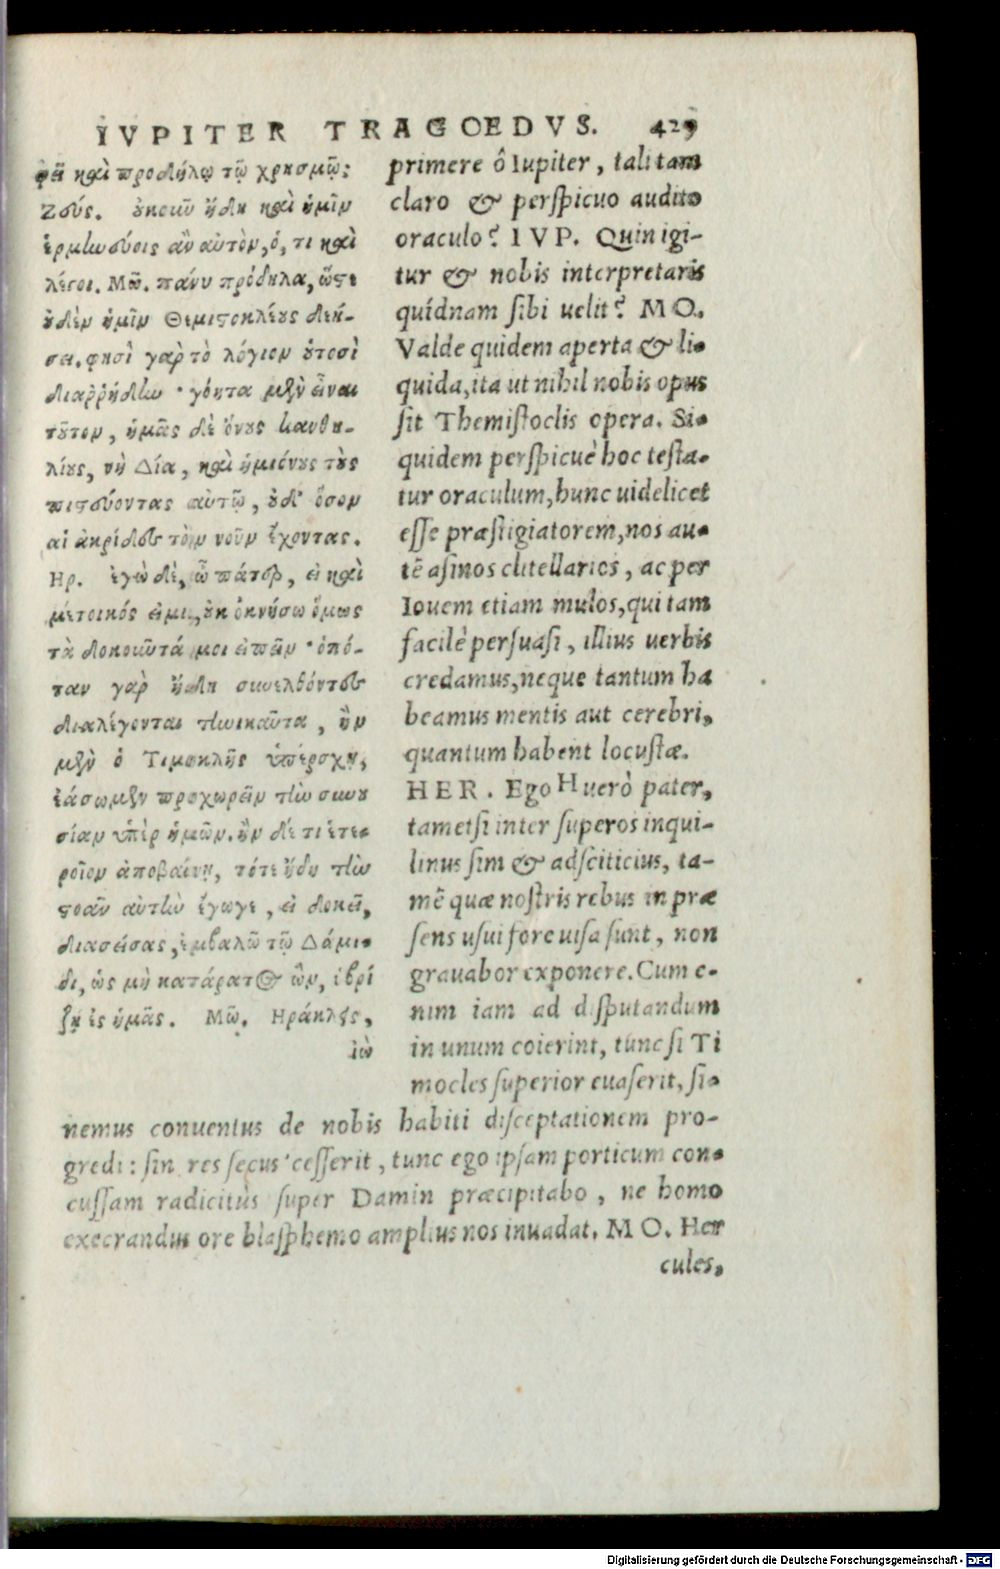 IVPITER TRAGOEDVS. 429
φεῖ καὶ προδήλῳ τῷ χρησμῷ;
Ζεύς. οὐκοῦν ἤδη καὶ ἡμῖν
ἑρμηνεύοις ἂν αὐτὸν, ὅ, τι καὶ
λέγοι. Μῶ. πάνυ πρόδηλα, ὥστε
οὐδὲν ἡμῖν Θεμιστοκλέους δεή-
σει. φησὶ γὰρ τὸ λόγιον οὑτοσὶ
διαῤῥήδην· γόητα μὲν εἶναι
τοῦτον, ἡμᾶς δὲ ὄνους κανθη-
λίους, νὴ Δία, καὶ ἡμιόνους τοὺς
πιστεύοντας αὐτῷ, οὐδ' ὅσον
αἱ ἀκρίδες τὸν νοῦν ἔχοντας.
Ηρ. ἐγὼ δὲ, ὦ πάτερ, εἰ καὶ
μέτοικός εἰμι, οὐκ ὀκνήσω ὅμως
τὰ δοκοῦντά μοι εἰπεῖν· ὁπό-
ταν γὰρ ἤδη συνελθόντες
διαλέγονται τηνικαῦτα, ἢν
μὲν ὁ Τιμοκλῆς ὑπέρσχῃ,
ἐάσωμεν προχωρεῖν τὴν συνου
σίαν ὑπὲρ ἡμῶν. ἢν δέ τι ἑτε-
ροῖον ἀποβαίνῃ, τότε ἤδη τὴν
στοὰν αὐτὴν ἔγωγε, εἰ δοκεῖ,
διασείσας, ἐμβαλῶ τῷ Δάμι-
δι, ὡς μὴ κατάρατος ὢν, ὑβρί
ζῃ ἐς ἡμᾶς. Μῶ. Ηράκλεις,
ἰὼ
primere ô Iupiter, tali tam
claro & perspicuo audito
oraculo? IVP. Quin igi-
tur & nobis interpretaris
quídnam sibi uelit? MO.
Valde quidem aperta & li-
quida, ita ut nihil nobis opus
sit Themistoclis opera. Si-
quidem perspicuè hoc testa-
tur oraculum, hunc uidelicet
esse præstigiatorem, nos au-
tē asinos clitellarios, ac per
Iouem etiam mulos, qui tam
facilè persuasi, illius uerbis
credamus, neque tantum ha
beamus mentis aut cerebri,
quantum habent locustæ.
HER. Ego H uerò pater,
tametsi inter superos inqui-
linus sim & adsciticius, ta-
mē quæ nostris rebus in præ
sens usui fore uisa sunt, non
grauabor exponere. Cum e-
nim iam ad disputandum
in unum coierint, tunc si Ti
mocles superior euaserit, si-
nemus conuentus de nobis habiti disceptationem pro-
gredi: sin res secus cesserit, tunc ego ipsam porticum con-
cussam radicitùs super Damin præcipitabo, ne homo
execrandus ore blasphemo amplius nos inuadat. MO. Her
cules,
Digitalisierung gefördert durch die Deutsche Forschungsgemeinschaft - DFG